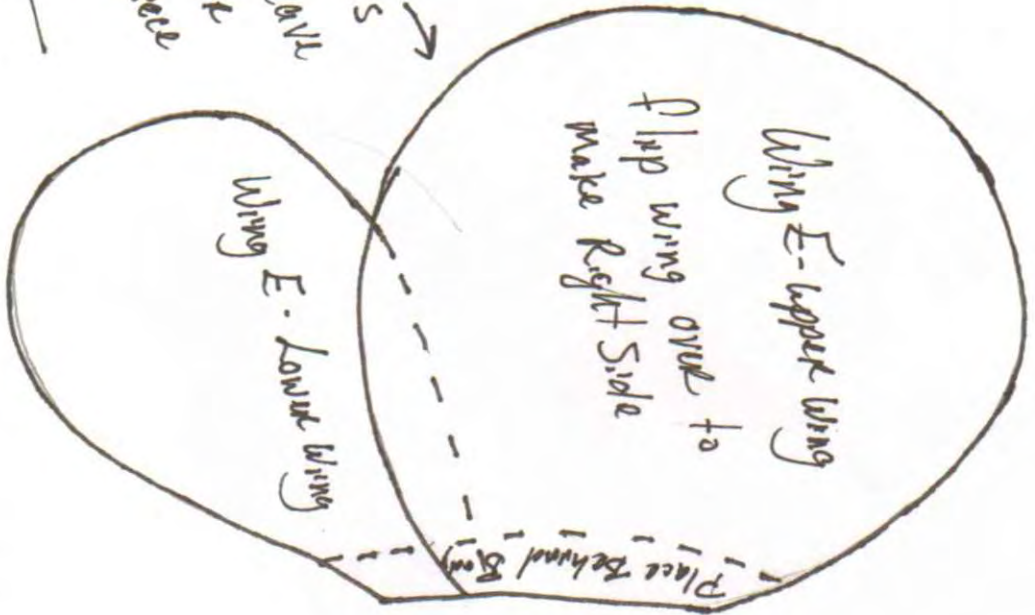 Wing E-upper Wing
flip wing over to
make Right Side
Wing E - Lower Wing
Place Behind Body